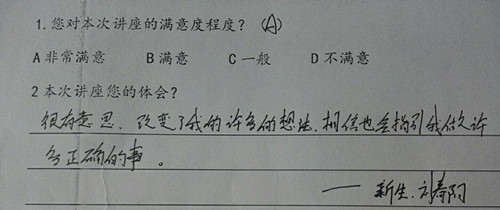 1.您对本次讲座的满意度程度？（A）
A 非常满意 B 满意 C 一般 D 不满意
2 本次讲座您的体会？
很有意思．改变了我的许多的想法．相信也会指引我做许
多正确的事。
—— 新生．刘寿阳